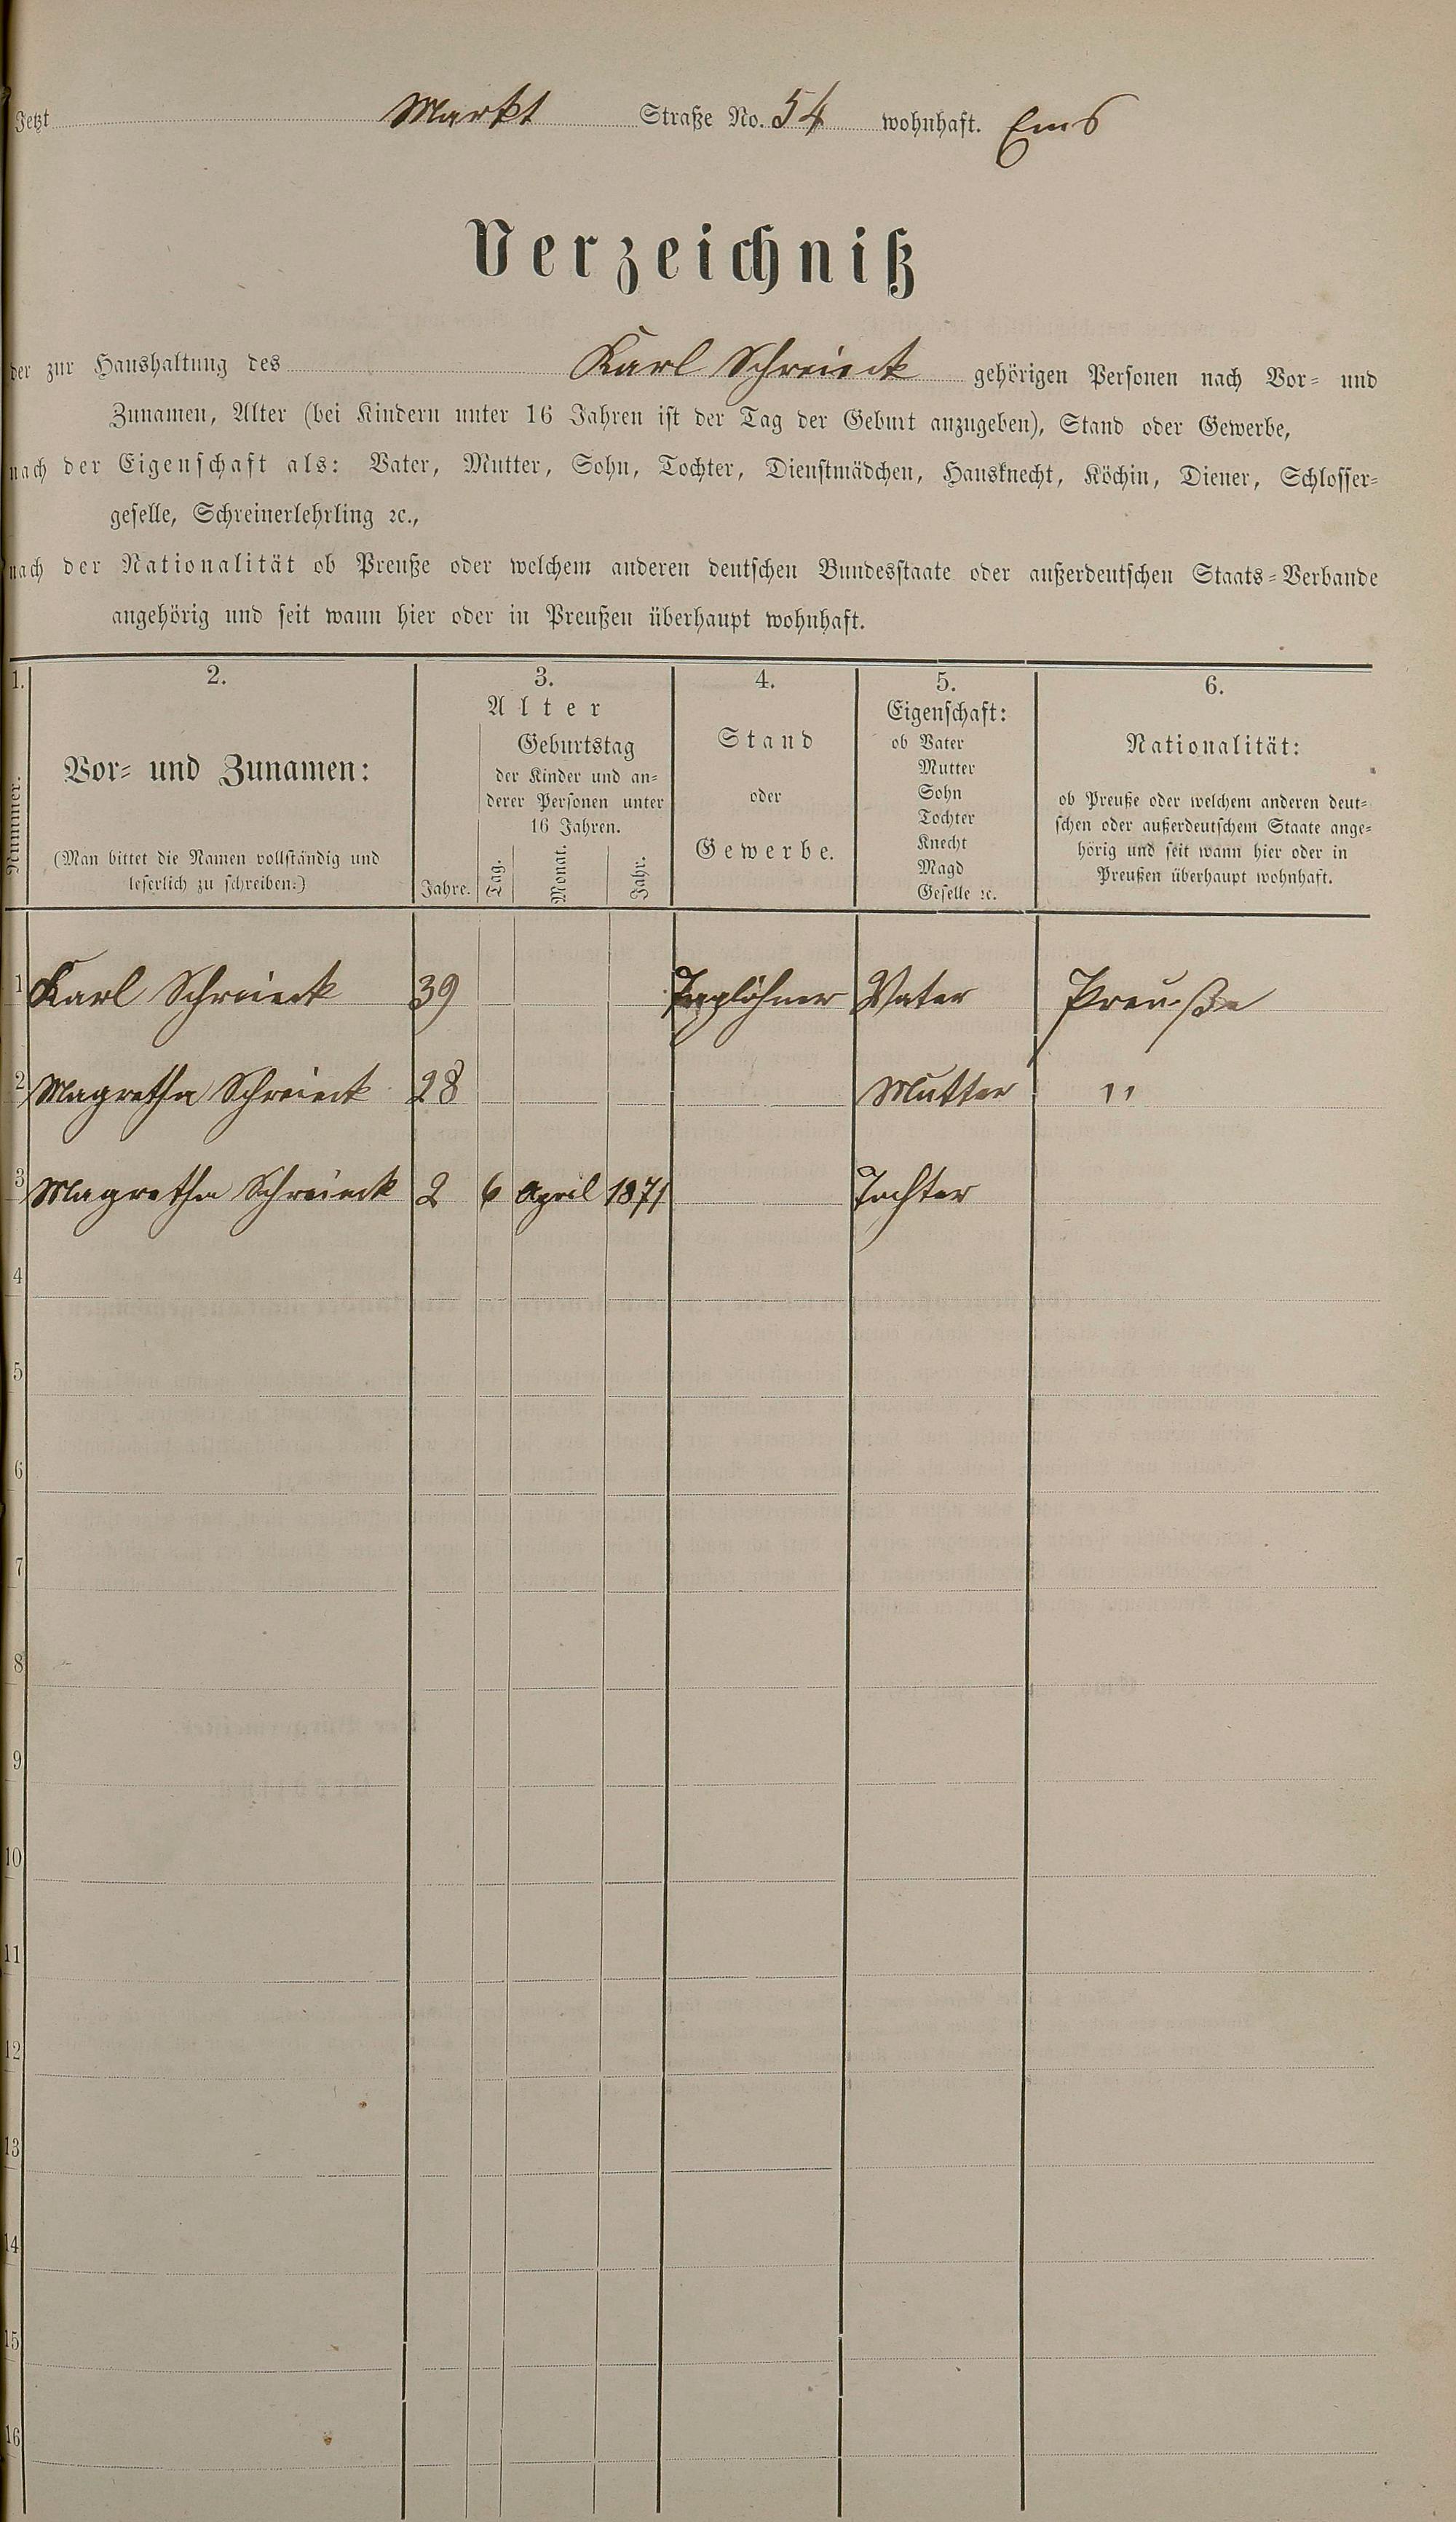 Jetzt Markt Straße No. 54 wohnhaft. Ems
Verzeichniß
der zur Haushaltung des Karl Schreieck gehörigen Personen nach Vor- und
Zunamen, Alter (bei Kindern unter 16 Jahren ist der Tag der Geburt anzugeben), Stand oder Gewerbe,
nach der Eigenschaft als: Vater, Mutter, Sohn, Tochter, Dienstmädchen, Hausknecht, Köchin, Diener, Schlosser-
geselle, Schreinerlehrling ꝛc.,
nach der Nationalität ob Preuße oder welchem anderen deutschen Bundesstaate oder außerdeutschen Staats-Verbande
angehörig und seit wann hier oder in Preußen überhaupt wohnhaft.
1.
Nummer.
2.
Vor- und Zunamen:
(Man bittet die Namen vollständig und
leserlich zu schreiben.)
3.
Alter
Jahre.
Geburtstag
der Kinder und an-
derer Personen unter
16 Jahren.
Tag. Monat. Jahr.
4.
Stand
oder
Gewerbe.
5.
Eigenschaft:
ob Vater
Mutter
Sohn
Tochter
Knecht
Magd
Geselle ꝛc.
6.
Nationalität:
ob Preuße oder welchem anderen deut-
schen oder außerdeutschem Staate ange-
hörig und seit wann hier oder in
Preußen überhaupt wohnhaft.
1 Karl Schreieck 39 Taglöhner Vater Preuße
2 Magretha Schreieck 28 Mutter "
3 Magretha Schreieck 2 6 April 1871 Tochter
4
5
6
7
8
9
10
11
12
13
14
15
16